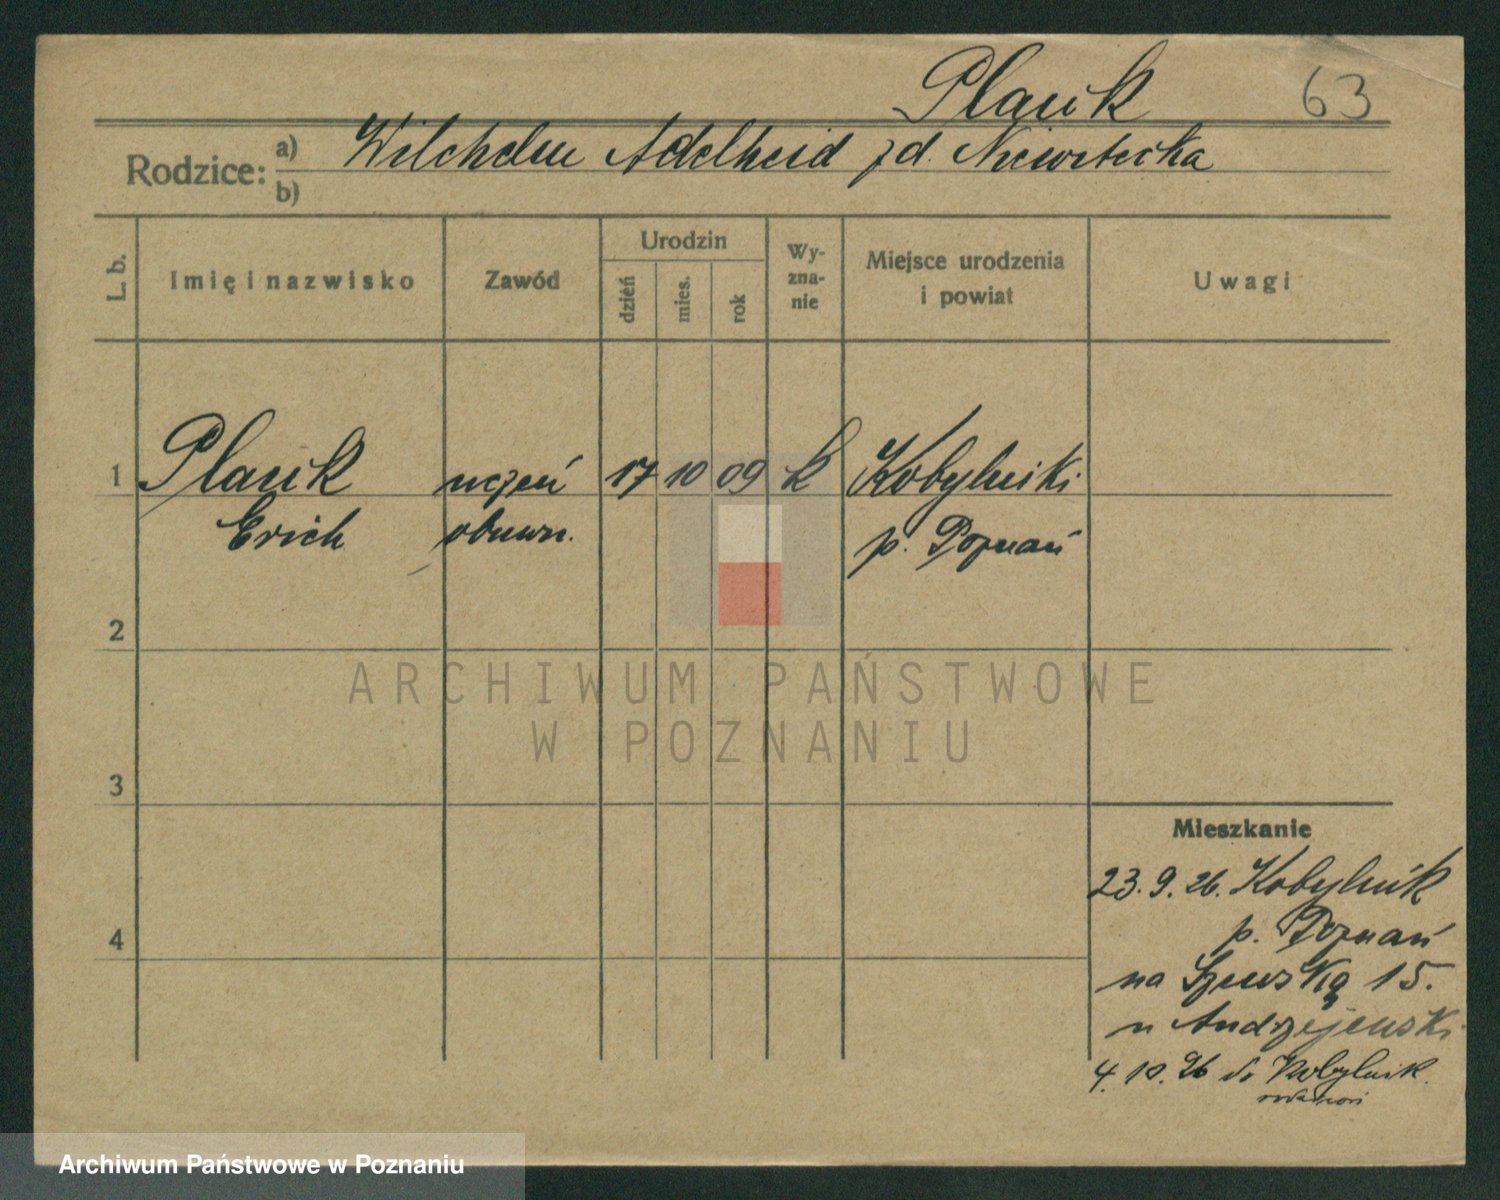 Plauk 63
Rodzice: a) Wilchelm Adelheid z d.
b)
L. b. Imię i nazwisko Zawód Urodzin dzień mies. rok Wy-zna-nie Miejsce urodzenia i powiat Uwagi
1 Plauk uczeń 17 10 09 k Kobylniki
Erich obuwn. p. Poznań
2
3
4
Mieszkanie
23.9.26. Kobylnik
p. Poznań
na Szewską 15.
u Andrzejewski
4.10.26 do Kobylnik.
ARCHIWUM PAŃSTWOWE
W POZNANIU
Archiwum Państwowe w Poznaniu